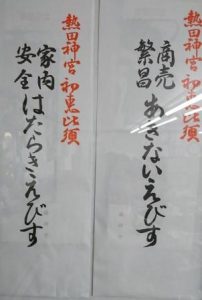 熱田神宮 初恵比須
商売
繁昌
あきないえびす
熱田神宮 初恵比須
家内
安全
はたらきえびす